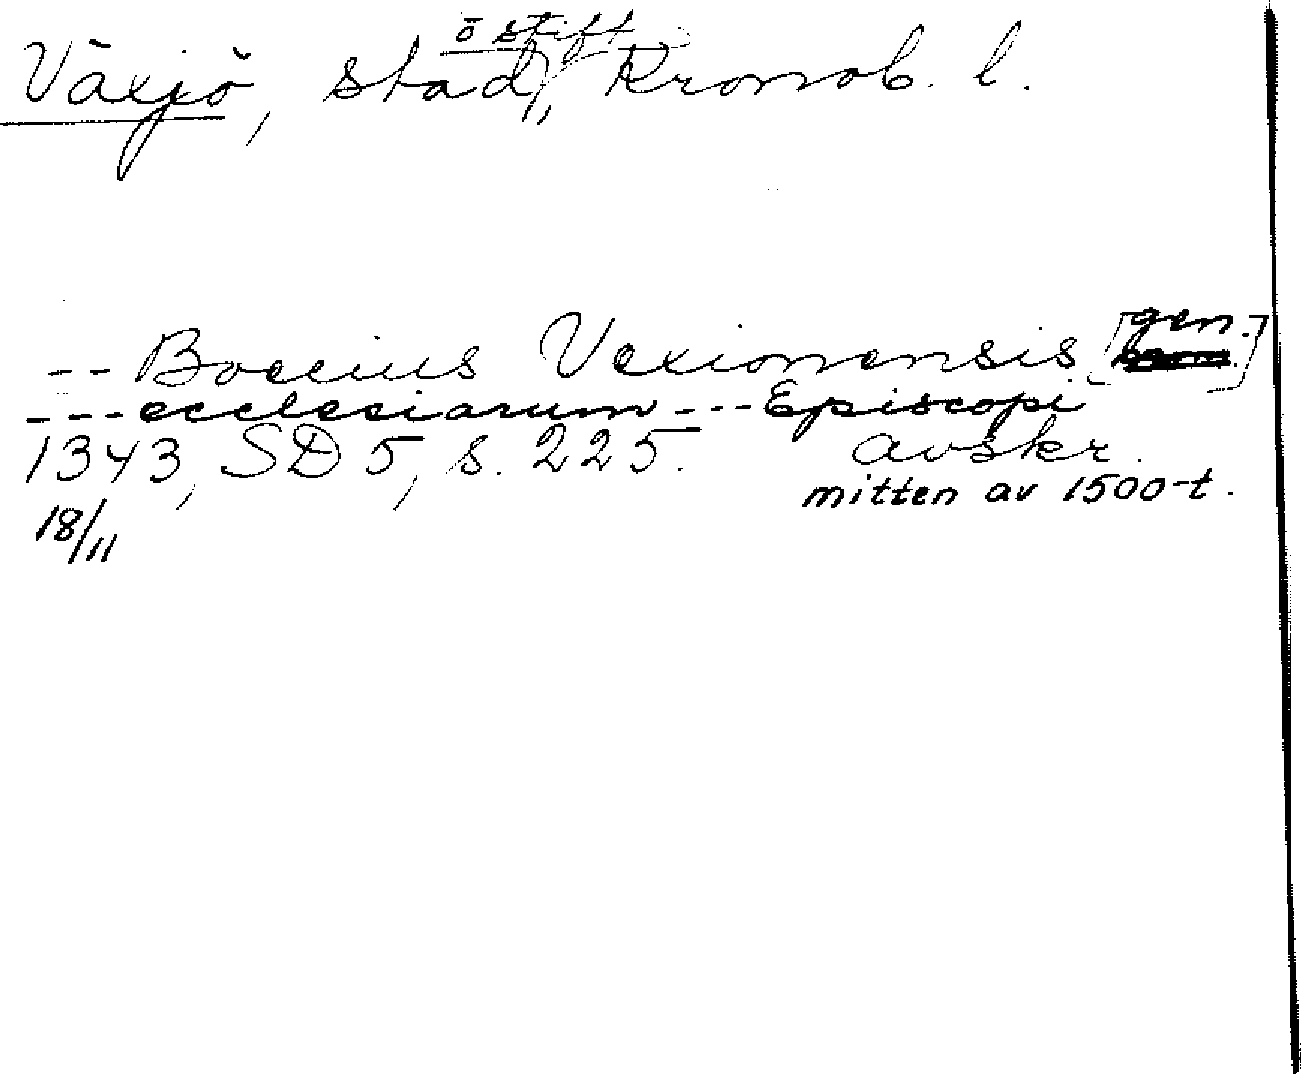 ö stift
Växjö, stad, Kronob. l.
-- Boecius Vexionensis [gen.]
--- ecclesiarum --- Episcopi
1343, SD 5, s. 225. avskr.
mitten av 1500-t.
18/11